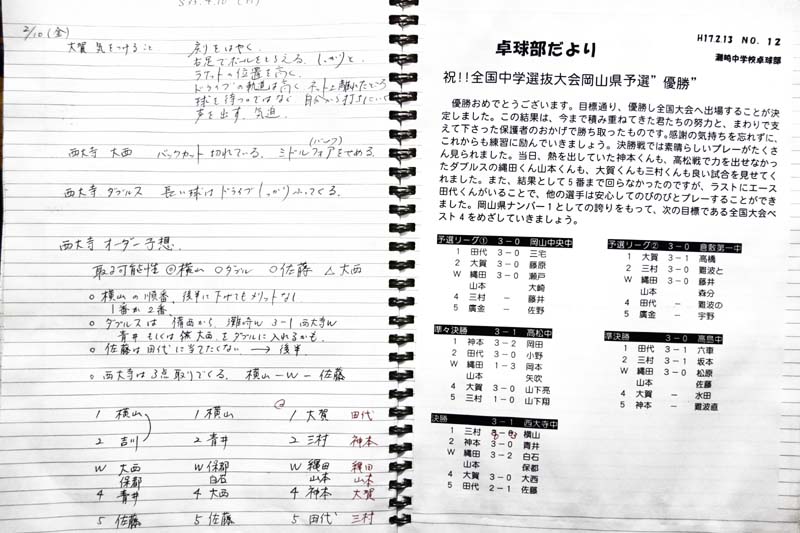 2/10(金)
大賀 気をつけること 戻りをはやく。
右足でボールをとらえる。しっかりと
ラケットの位置を高く。
ドライブの軌道は高く ネットと離れたところ
球を待つのではなく 自分から打ちにいく
声を出す、気迫
(バンク)
西大寺 大西 バックカット切れている。ミドルフォアをせめる。
西大寺 ダブルス 長い球はドライブしっかりふってくる。
西大寺 オーダー予想。
取る可能性 ◎横山 ○ダブル ○佐藤 △大西
○ 横山の順番、後半に下げてもメリットなし
1番か2番。
○ ダブルスは、備西から、灘崎W 3-1 西大寺W
青井もしくは 大西、をダブルに入れるかも。
○ 佐藤は田代に当てたくない → 後半
○ 西大寺は3点取りでくる。横山-W-佐藤
1 横山 1 横山 1 大賀 田代
2 吉川 2 青井 2 三村 神本
W 大西 W 保都 W 縄田 縄田
保都 白石 山本 山本
4 青井 4 大西 4 神本 大賀
5 佐藤 5 佐藤 5 田代 三村
H17.2.13 NO. 12
卓球部だより
灘崎中学校卓球部
祝!!全国中学選抜大会岡山県予選”優勝”
優勝おめでとうございます。目標通り、優勝し全国大会へ出場することが
決定しました。この結果は、今まで積み重ねてきた君たちの努力と、まわりで支
えて下さった保護者のおかげで勝ち取ったものです。感謝の気持ちを忘れずに、
これからも練習に励んでいきましょう。決勝戦では素晴らしいプレーがたくさ
ん見られました。当日、熱を出していた神本くんも、高松戦で力を出せなかっ
たダブルスの縄田くん山本くんも、大賀くんも三村くんも良い試合を見せてく
れました。また、結果として5番まで回らなかったのですが、ラストにエース
田代くんがいることで、他の選手は安心してのびのびとプレーすることができ
ました。岡山県ナンバー1としての誇りをもって、次の目標である全国大会ベ
スト4をめざしていきましょう。
予選リーグ① 3-0 岡山中央中
1 田代 3-0 三宅
2 大賀 3-0 藤原
W 縄田 3-0 瀬戸
山本 大崎
4 三村 - 藤井
5 廣金 - 佐野
予選リーグ② 3-0 倉敷第一中
1 大賀 3-1 高橋
2 三村 3-0 難波と
W 縄田 3-0 藤井
山本 森分
4 田代 - 難波の
5 廣金 - 宇野
準々決勝 3-1 高松中
1 神本 3-2 岡田
2 田代 3-0 小野
W 縄田 1-3 岡本
山本 矢吹
4 大賀 3-0 山下亮
5 三村 1-0 山下翔
準決勝 3-0 高島中
1 田代 3-1 六車
2 三村 3-1 坂本
W 縄田 3-0 松原
山本 佐藤
4 大賀 - 水田
5 神本 - 難波直
決勝 3-1 西大寺中
1 三村 横山
2 神本 3-0 青井
W 縄田 3-2 白石
山本 保都
4 大賀 3-0 大西
5 田代 2-1 佐藤